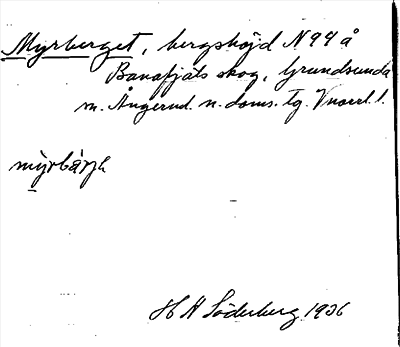 Myrberget, bergshöjd N 94 å
Banafjäls skog, Grundsunda
sn. Ångerml. n. doms. tg. Vnorrl. l.
mỳrbàrjẹ
H H Söderberg 1936